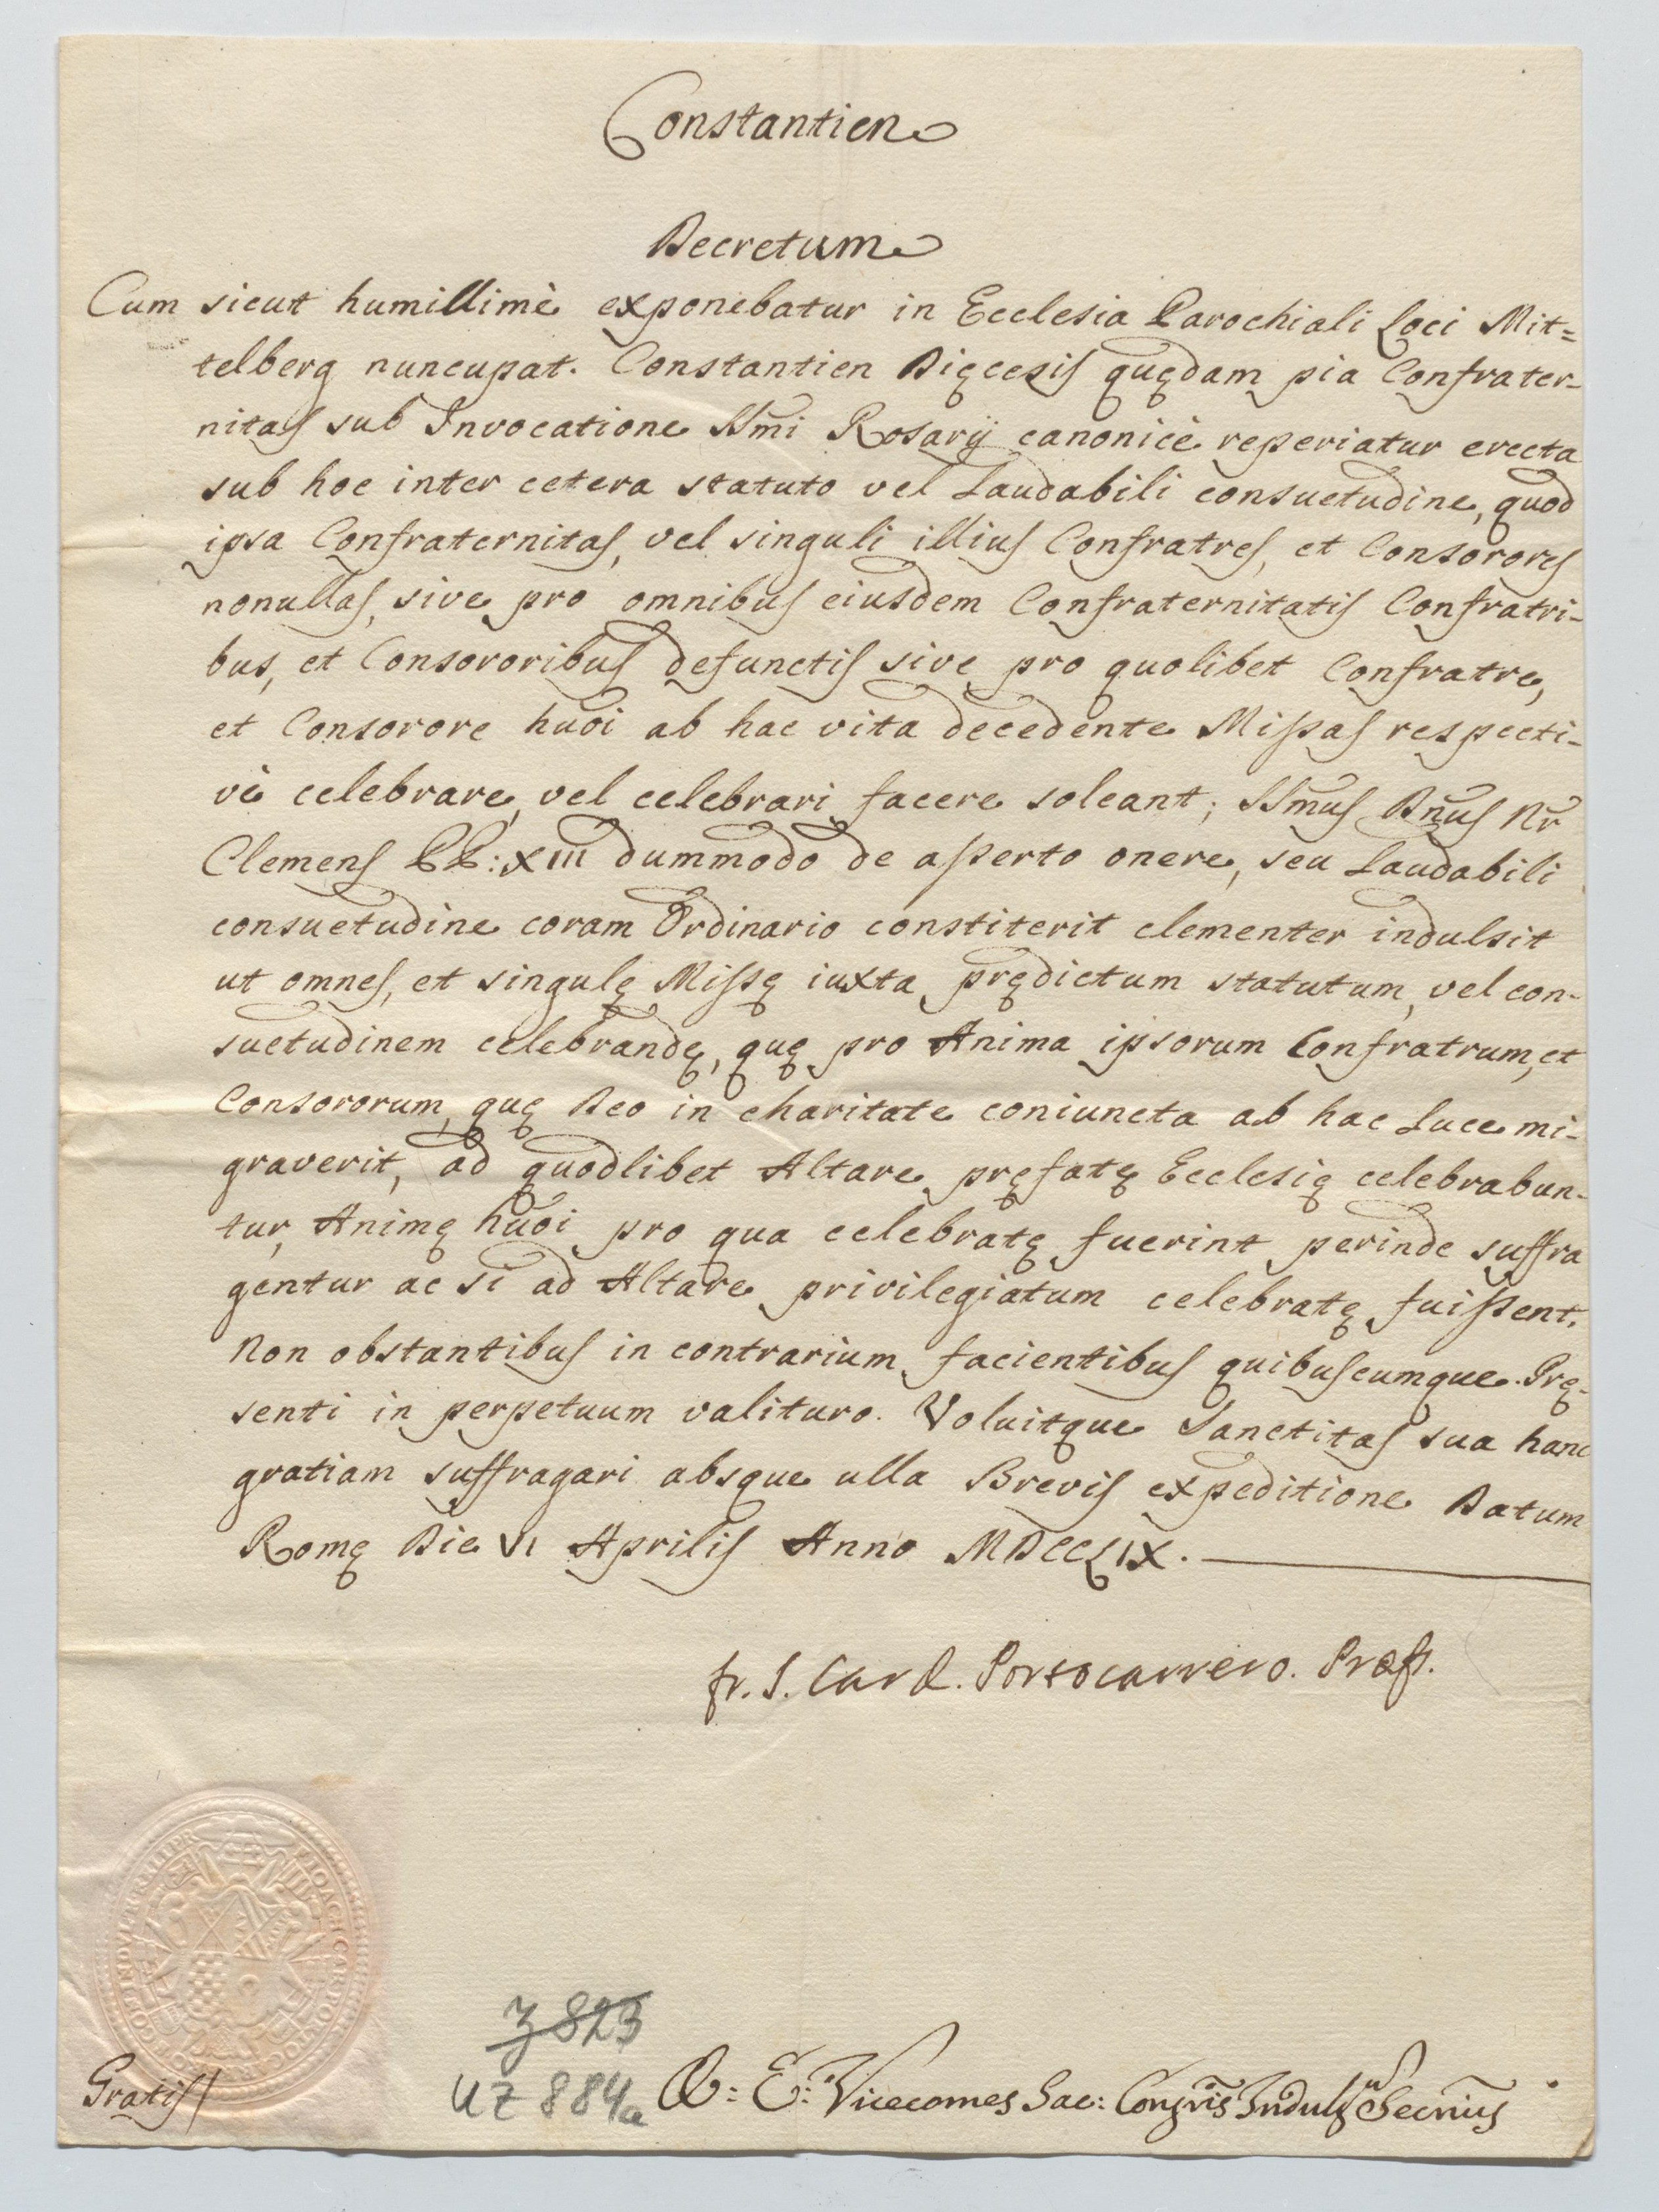 Constantien
Decretum
Cum sicut humillimè exponebatur in Ecclesia Parochiali Loci Mit=
telberg nuncupat. Constantien Dięcesis quędam pia Confrater-
nitas sub Invocatione SSm̃i Rosarij canonicè reperiatur erecta
sub hoc inter cetera statuto vel laudabili consuetudine, quod
ipsa Confraternitas, vel singuli illius Confratres, et Consorores
nonullas, sive pro omnibus eiusdem Confraternitatis Confratri-
bus, et Consororibus defunctis sive pro quolibet Confratre,
et Consorore hũoi ab hac vita decedente Missas respecti-
vè celebrare, vel celebrari facere soleant; SSm̃us Dñus Nr̃
Clemens PP: XIII dummodo de asserto onere, seu laudabili
consuetudine coram Ordinario constiterit clementer indulsit
ut omnes, et singulę Missę iuxta prędictum statutum, vel con-
suetudinem celebrandę, quę pro Anima ipsorum Confratrum, et
Consororum, quę Deo in charitate coniuncta ab hac Luce mi-
graverit, ad quodlibet Altare pręfatę Ecclesię celebrabun-
tur, Animę hũoi pro qua celebratę fuerint perinde suffra
gentur ac si ad Altare privilegiatum celebratę fuissent.
Non obstantibus in contrarium facientibus quibuscumque. Prę-
senti in perpetuum valituro. Voluitque Sanctitas sua hanc
gratiam suffragari absque ulla Brevis expeditione Datum
Romę Die VI Aprilis Anno MDCCLIX.
fr. J. Card. Portocarrero. Præf.
Gratis
z 823
UZ 884a
E: Vicecomes Sac: Congñis Indulg Secr̃ius